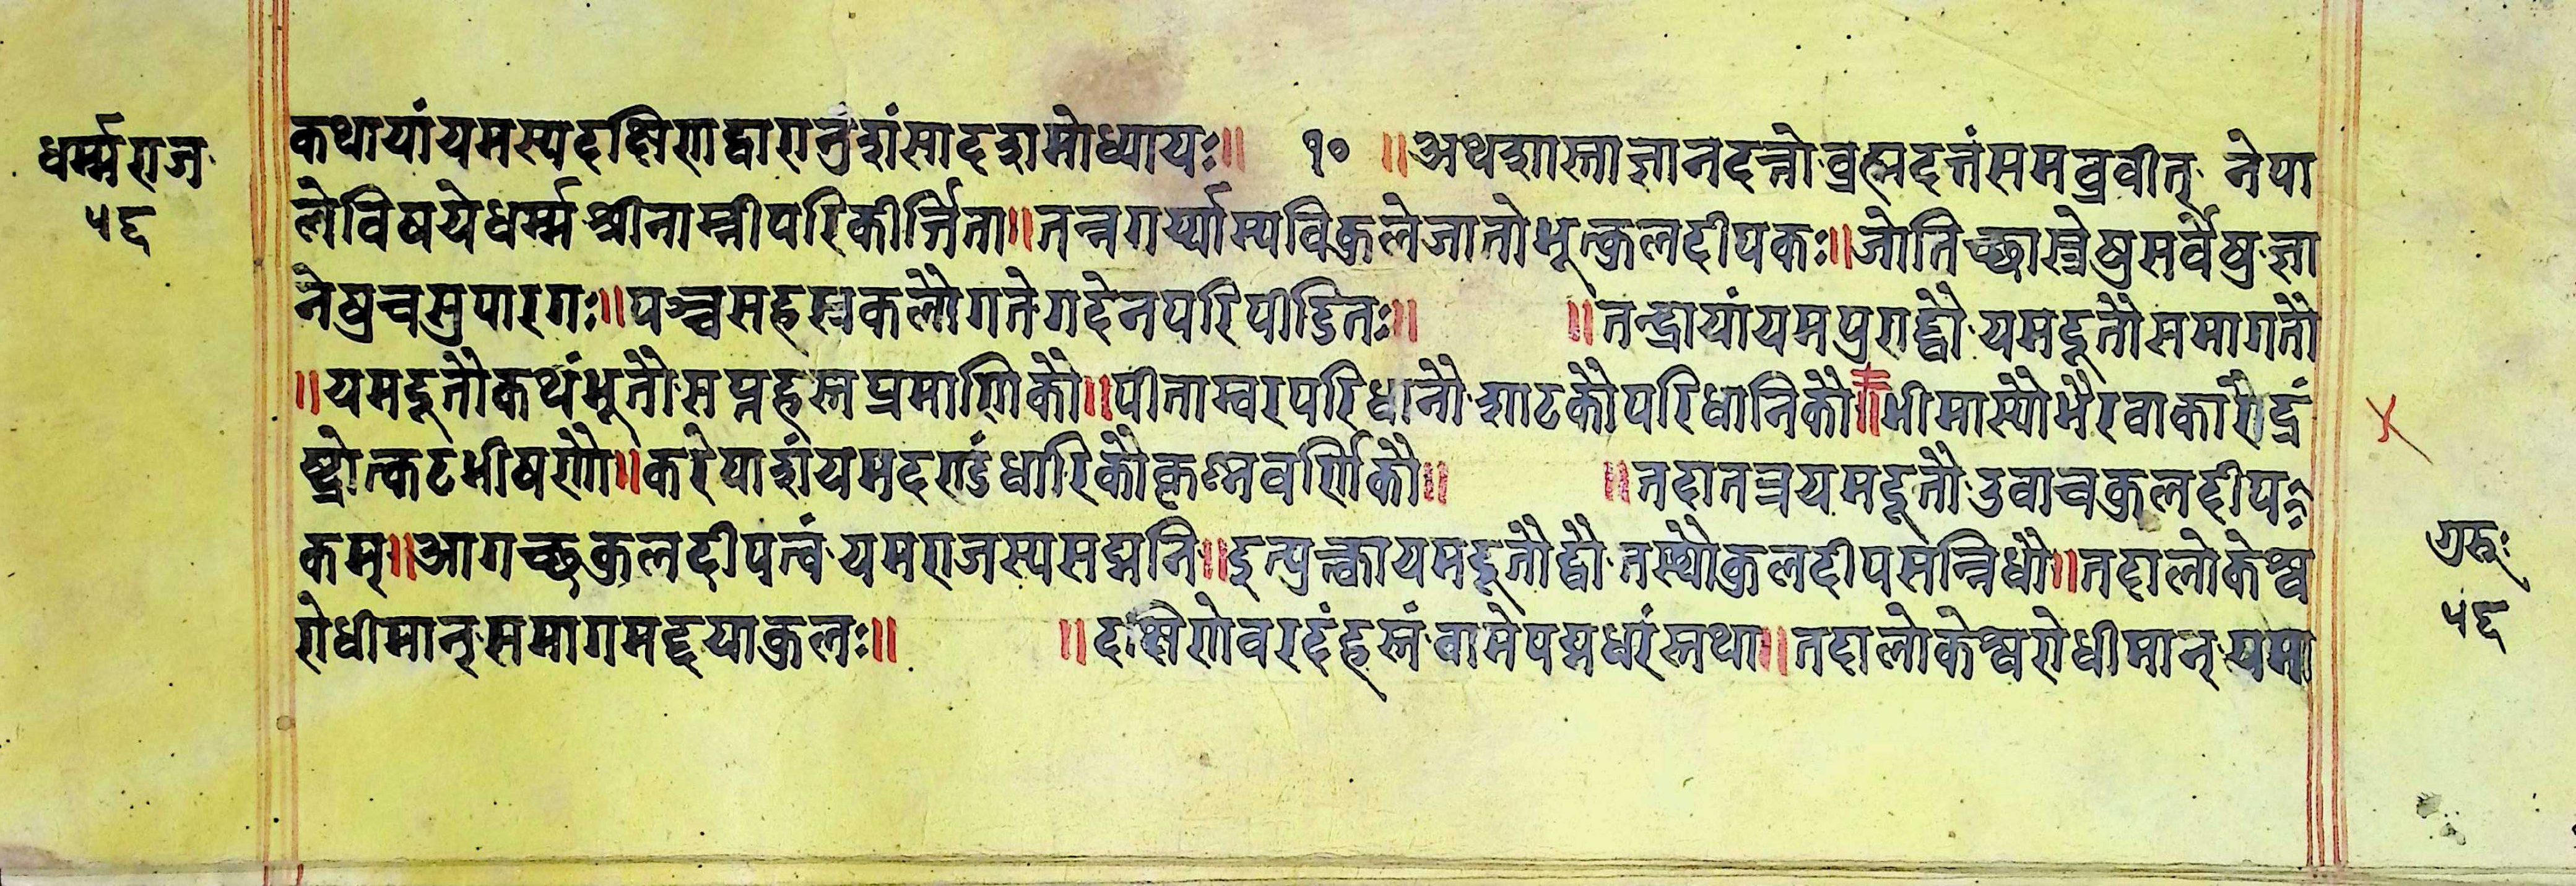 धर्म्मराज
५६
कथायांयमस्यदक्षिणद्वारानुशंसादशमोध्यायः॥ १० ॥अथशास्ताज्ञानदत्तोब्रह्मदत्तंसमब्रवीत् नेपा
लेविषयेधर्म्मश्रीनाम्नीपरिकीर्त्तिता॥तन्नगर्य्यास्यविकुलेजातोभूत्कुलदीपकः॥जोतिच्छास्त्रेषुसर्वेषुज्ञा
नेषुचसुपारगः॥पञ्चसहस्रकलौगतेगदेनपरिपीडितः॥ ॥तन्द्रायांयमपुराद्द्वौयमदूतौसमागतौ
॥यमदूतौकथंभूतौसप्तहस्तप्रमाणिकौ॥पीताम्बरपरिधानौशाटकौपरिधानिकौ॥भीमास्यौभैरवाकारौद्रं
ष्ट्रोत्कटभीषणौ॥करेपाशंयमदण्डंधारिकौकृष्णवर्णिकौ॥ ॥तदातत्रयमदूतौउवाचकुलदीप
कम्॥आगच्छकुलदीपत्वंयमराजस्यसद्मनि॥इत्युक्त्वायमदूतौद्वौतस्थौकुलदीपसन्निधौ॥तदालोकेश्व
रोधीमान्समागमद्दयाकुलः॥ ॥दक्षिणेवरदंहस्तंवामेपद्मधरंस्तथा॥तदालोकेश्वरोधीमान्यमा
गुरुः
५६